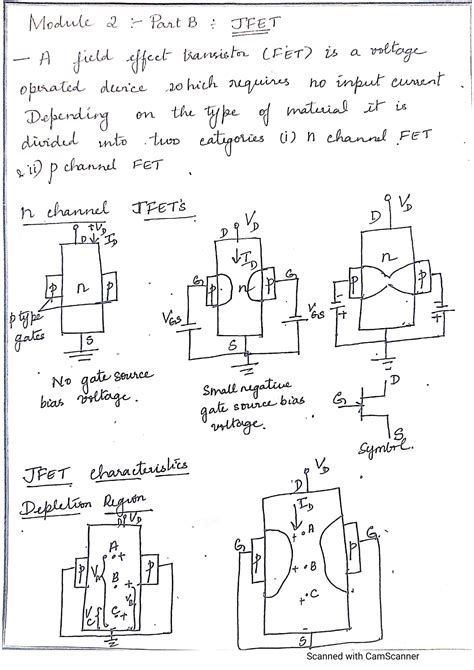 Module 2 :- Part B : JFET
- A field effect transistor (FET) is a voltage
operated device which requires no input current.
Depending on the type of material it is
divided into two categories (i) n channel FET
& ii) p channel FET
n channel JFET's
D V_D I_D
p n p
p type gates
S
No gate source
bias voltage.
D V_D
I_D
G p n p G
V_GS V_GS
S
Small negative
gate source bias
voltage.
D V_D
n
p p
V_GS
G D
S
Symbol.
JFET characteristics
Depletion Region
D V_D
A
p V_A B p
V_C C
D V_D
I_D
G p A p G
B
C
S
Scanned with CamScanner